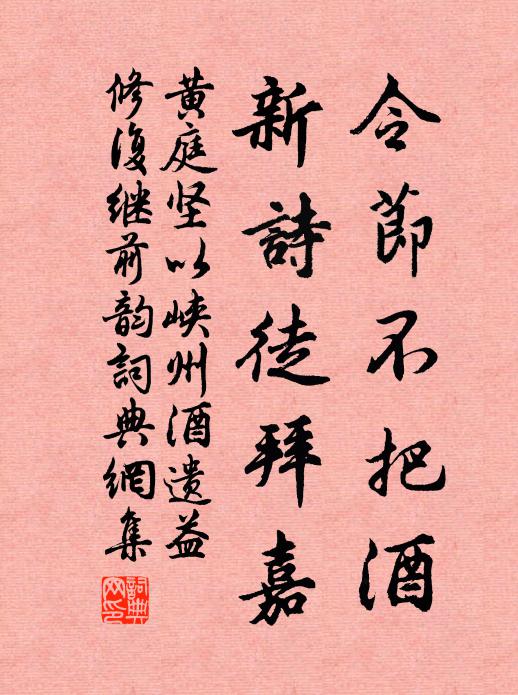 令節不把酒
新詩徒拜嘉
黄庭坚以峡州酒遗益
修復继前韵詞典網集
詞典网印